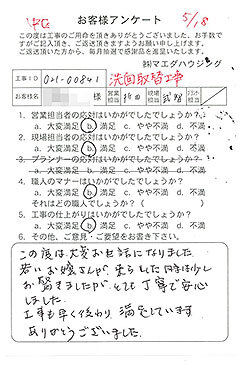 お客様アンケート
5/18
この度は工事のご用命を頂きありがとうございました。お手数で
すがご記入頂き、ご返送頂きますようお願い申し上げます。
ご返送頂いた方から、毎月抽選で感謝品を進呈いたします。
㈱マエダハウジング
工事ID 021-00841 洗面取替工事
お客様名 様 営業担当 現場担当
1. 営業担当者の応対はいかがでしたでしょうか?
a. 大変満足 b. 満足 c. やや不満 d. 不満
2. 現場担当者の応対はいかがでしたでしょうか?
a. 大変満足 b. 満足 c. やや不満 d. 不満
3. プランナーの応対はいかがでしたでしょうか?
a. 大変満足 b. 満足 c. やや不満 d. 不満
4. 職人のマナーはいかがでしたでしょうか?
a. 大変満足 b. 満足 c. やや不満 d. 不満
それはどの職人でしょうか?( )
5. 工事の仕上がりはいかがでしたでしょうか?
a. 大変満足 b. 満足 c. やや不満 d. 不満
6. その他、ご意見・ご要望をお書き下さい。
この度は大変お世話になりました。
若いお嬢さんが、来られた時は少し
お驚きましたが、とても丁寧で安心
しました。
工事も早く終わり満足しています
ありがとうございました。